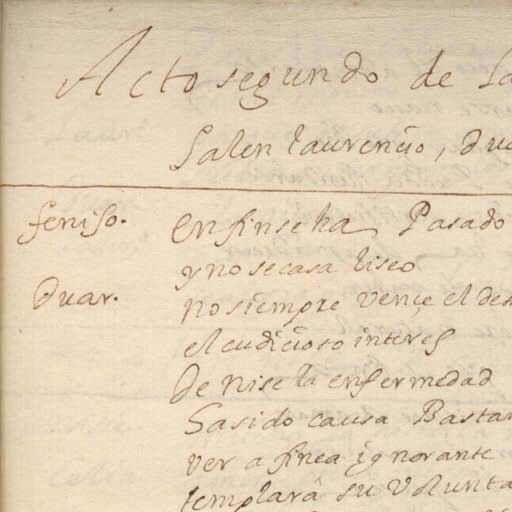 Acto segundo de la
Salen laurencio, dua
feniso. En fin se ha Pasado
y no se casa liseo
Duar. no siempre vençe el des
el cudicioso interes
De nise la enfermedad
Ha sido causa Bastan
ver a finea ignorante
templara su volunta